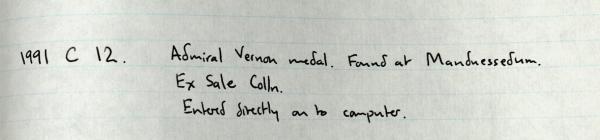 1991 C 12. Admiral Vernon medal. Found at Manduessedum.
Ex Sale Colln.
Entered directly on to computer.